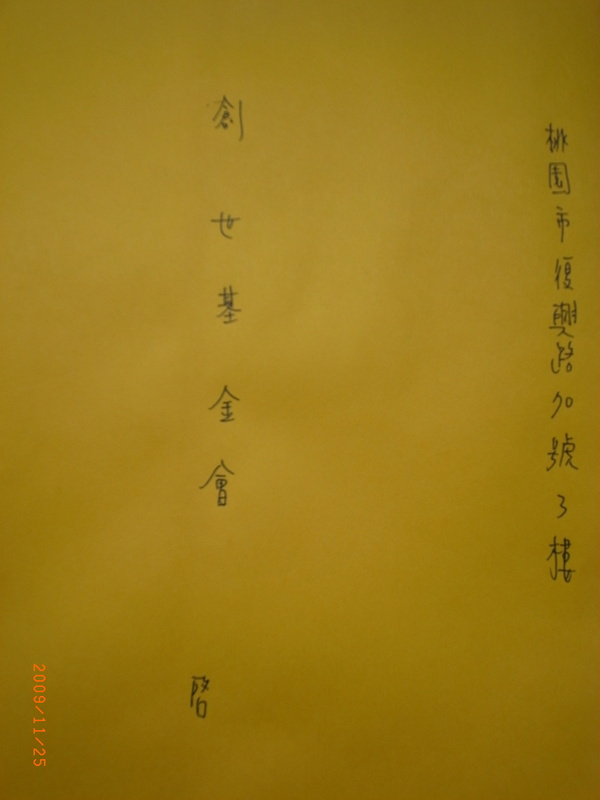 桃園市復興路70號3樓
創世基金會 啓
2009/11/25